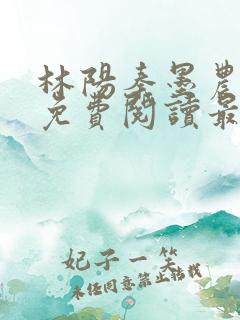 林陽秦墨農
免費閱讀最
妃子一笑
未經同意禁止轉載